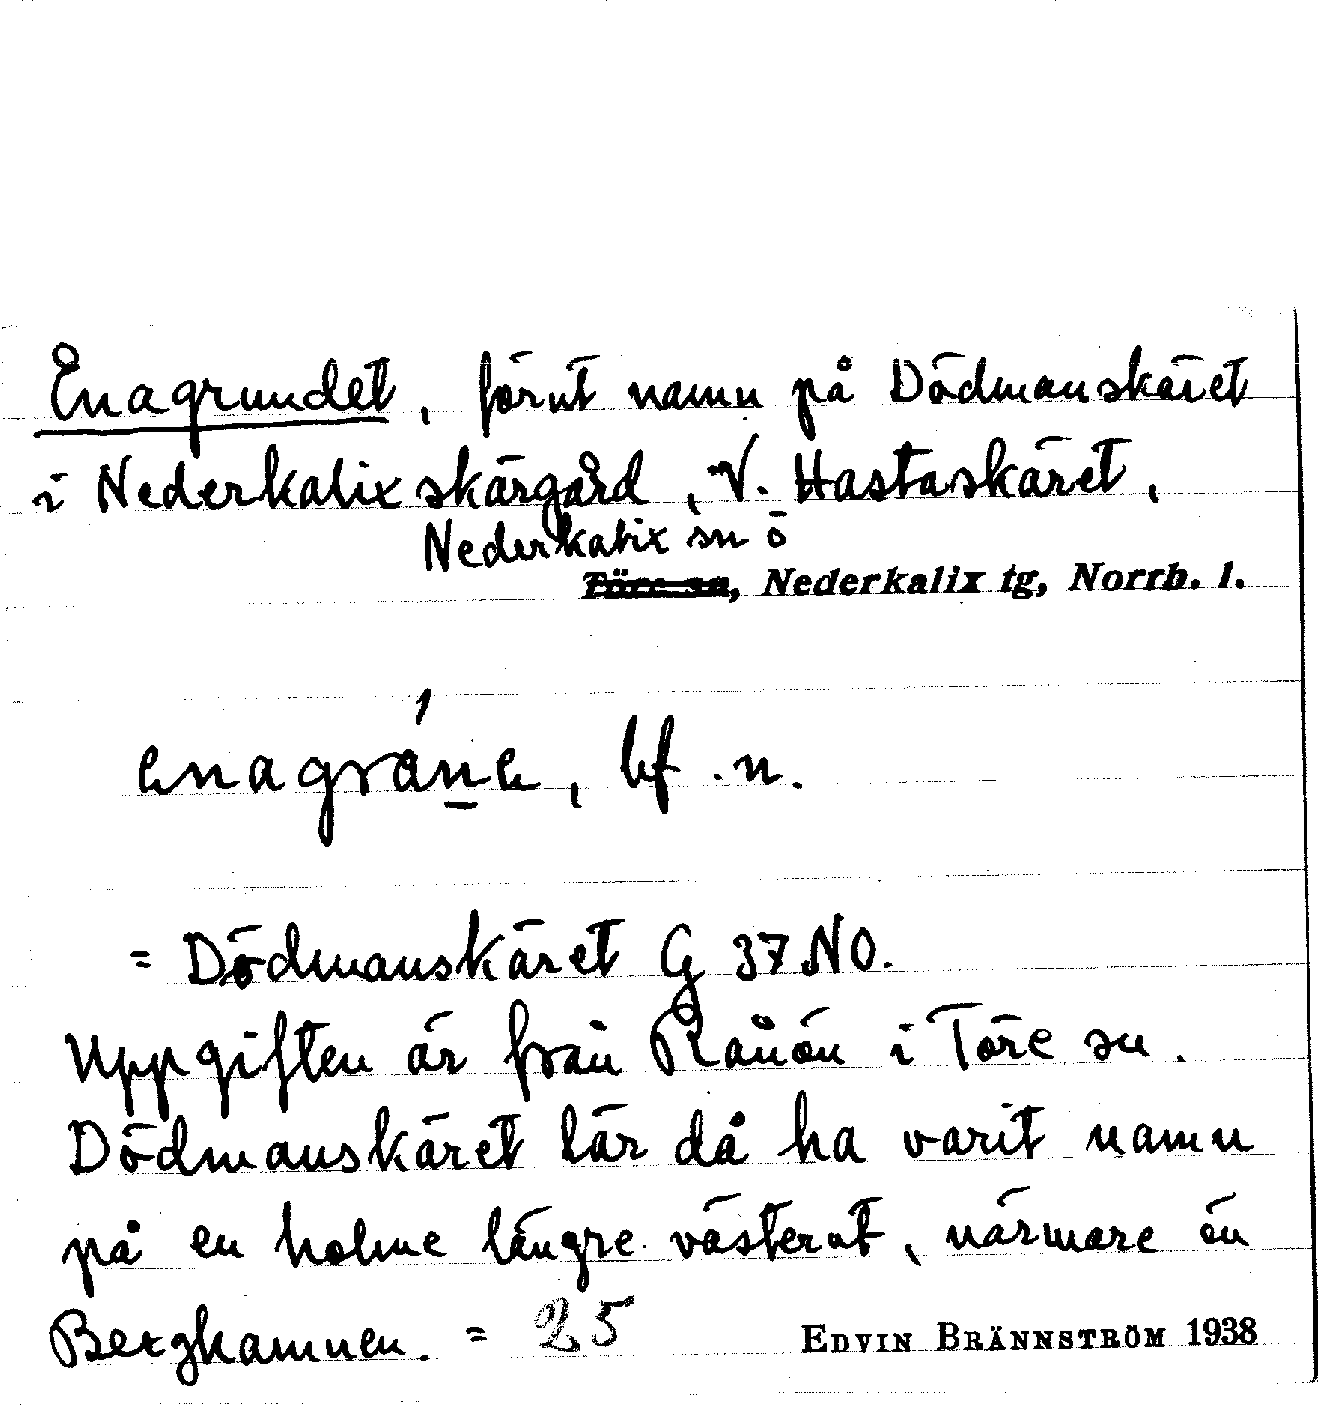 Enagrundet, förut namn på Dödmanskäret
i Nederkalix skärgård, V. Hastaskäret,
Nederkalix sn ö
Töre sn, Nederkalix tg, Norrb. l.
enagráne, bf. n.
= Dödmanskäret G 37 NO.
Uppgiften är från Rånön i Töre sn.
Dödmanskäret lär då ha varit namn
på en holme längre västerut, närmare ön
Berghamnen. = 25
EDVIN BRÄNNSTRÖM 1938